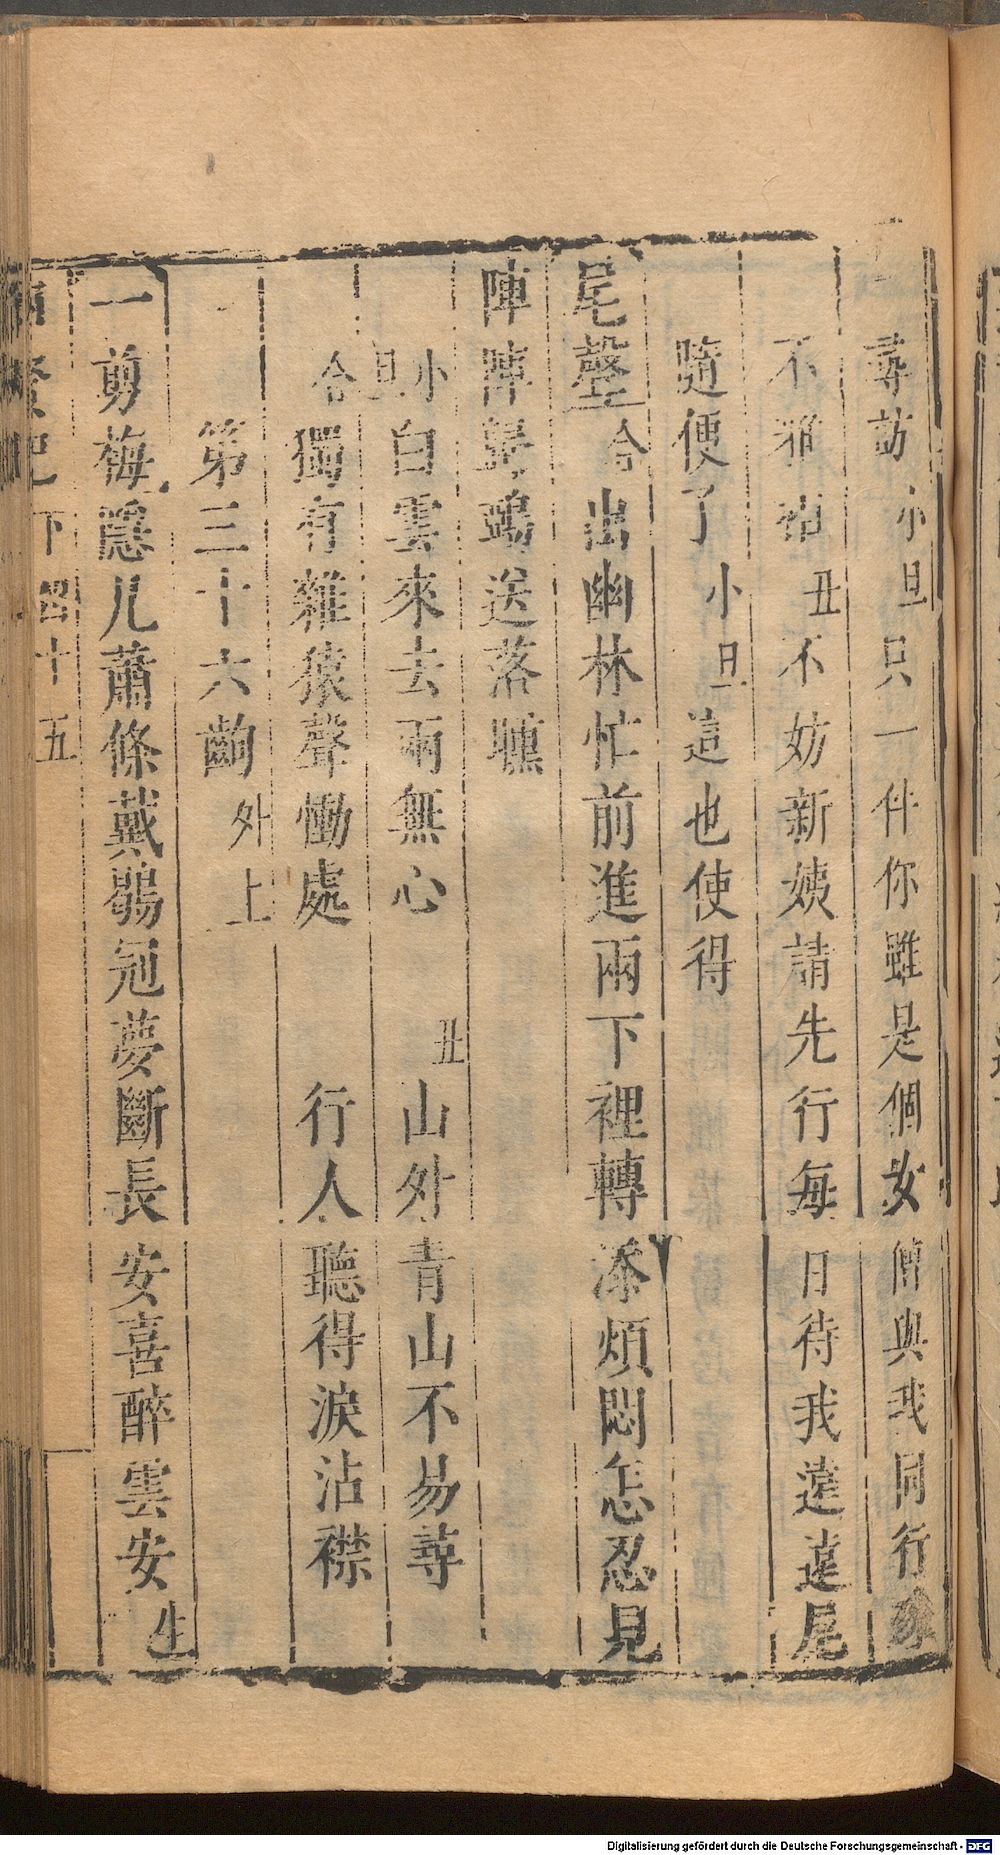 尋訪小旦只一件你雖是個女僧與我同行
不雅相丑不妨新姨請先行每日待我遠遠尾
隨便了小旦這也使得
尾聲合出幽林忙前進兩下裡轉添煩悶怎忍見
陣陣歸鴉送落曛
小旦白雲來去雨無心丑山外青山不易尋
合獨有雜猿聲慟處行人聽得淚沾襟
第三十六齣外上
一剪梅隱几蕭條戴鶡冠夢斷長安喜醉雲安生
記下四十五
Digitalisierung gefördert durch die Deutsche Forschungsgemeinschaft - DFG